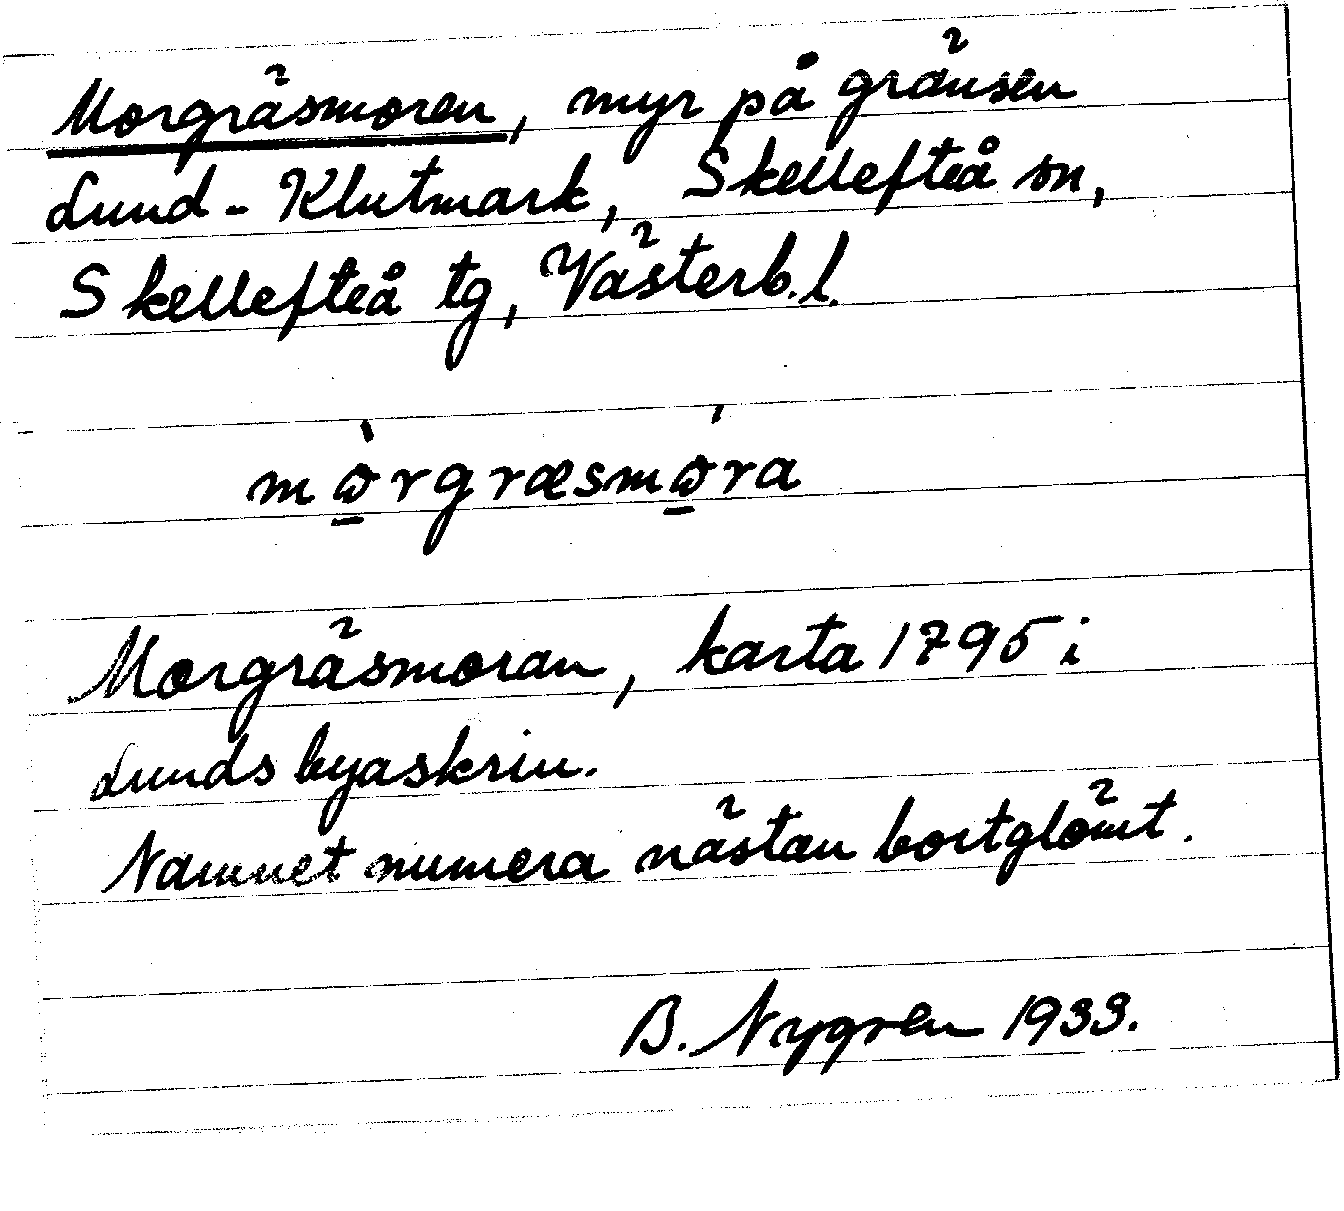 Morgräsmoren, myr på gränsen
Lund - Klutmark, Skellefteå sn,
Skellefteå tg, Västerb. l.
mɷ̱̀rgræsmɷ̱́ra
Morgräsmoran, karta 1795 i
Lunds byaskrin.
Namnet numera nästan bortglömt.
B. Nygren 1933.